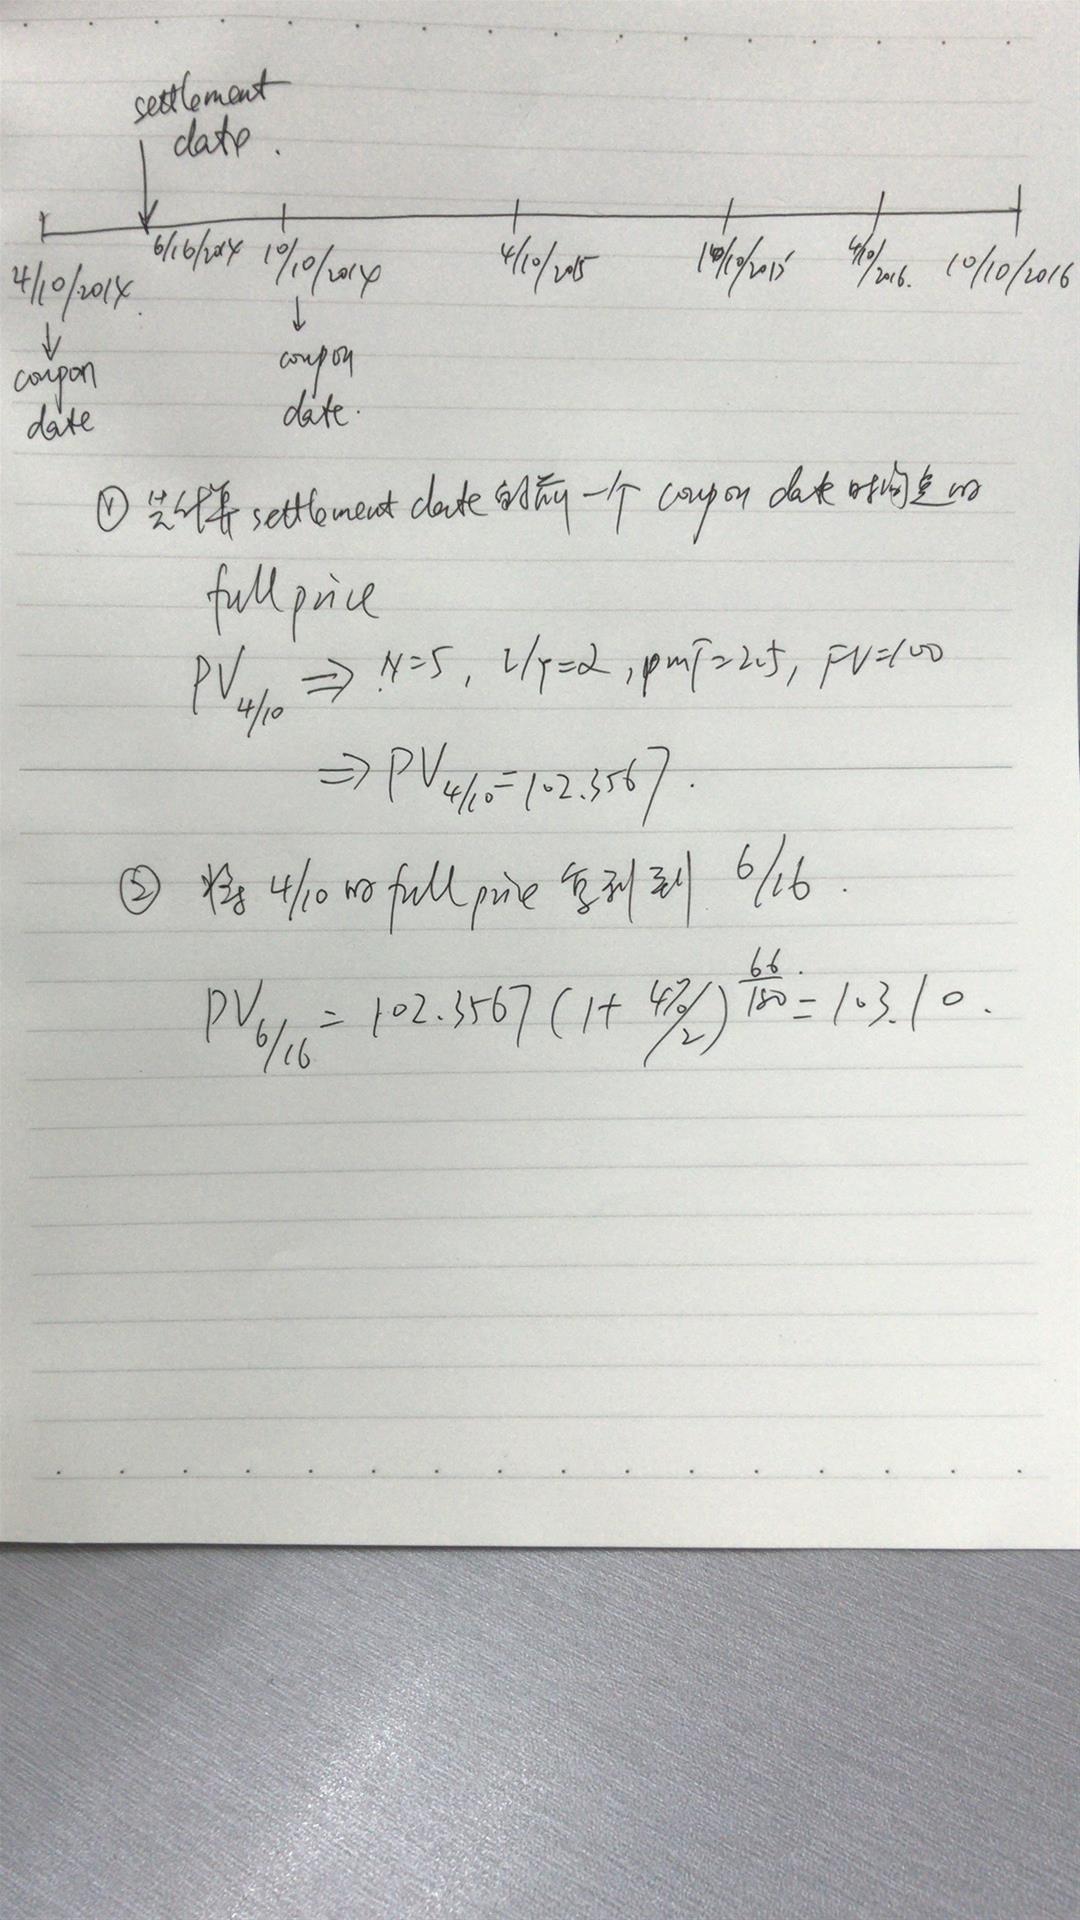 settlement
date.
6/16/2014 10/10/2014 4/10/2015 10/10/2015 4/10/2016. 10/10/2016
4/10/2014.
↓ ↓
coupon date coupon date.
① 先计算 settlement date 的前一个 coupon date 时间点的
full price
PV4/10 ⇒ N=5, I/Y=2, PMT=2.5, FV=100
⇒ PV4/10=102.3567.
② 将 4/10 的 full price 复利到 6/16.
PV6/16 = 102.3567 (1+ 4%/2)^66/180 = 103.10.